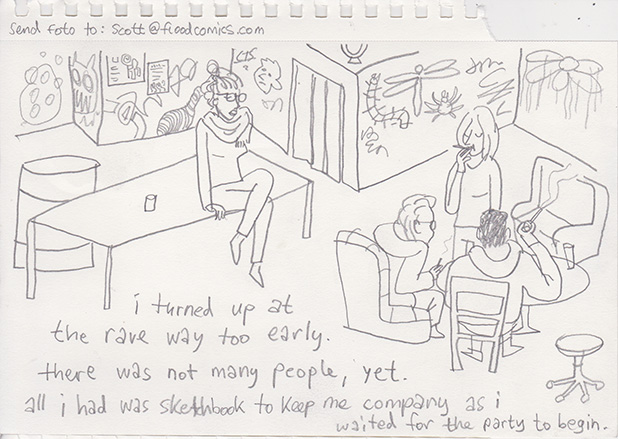 send foto to: scott@floodcomics.com
i turned up at
the rave way too early.
there was not many people, yet.
all i had was sketchbook to keep me company as i
waited for the party to begin.